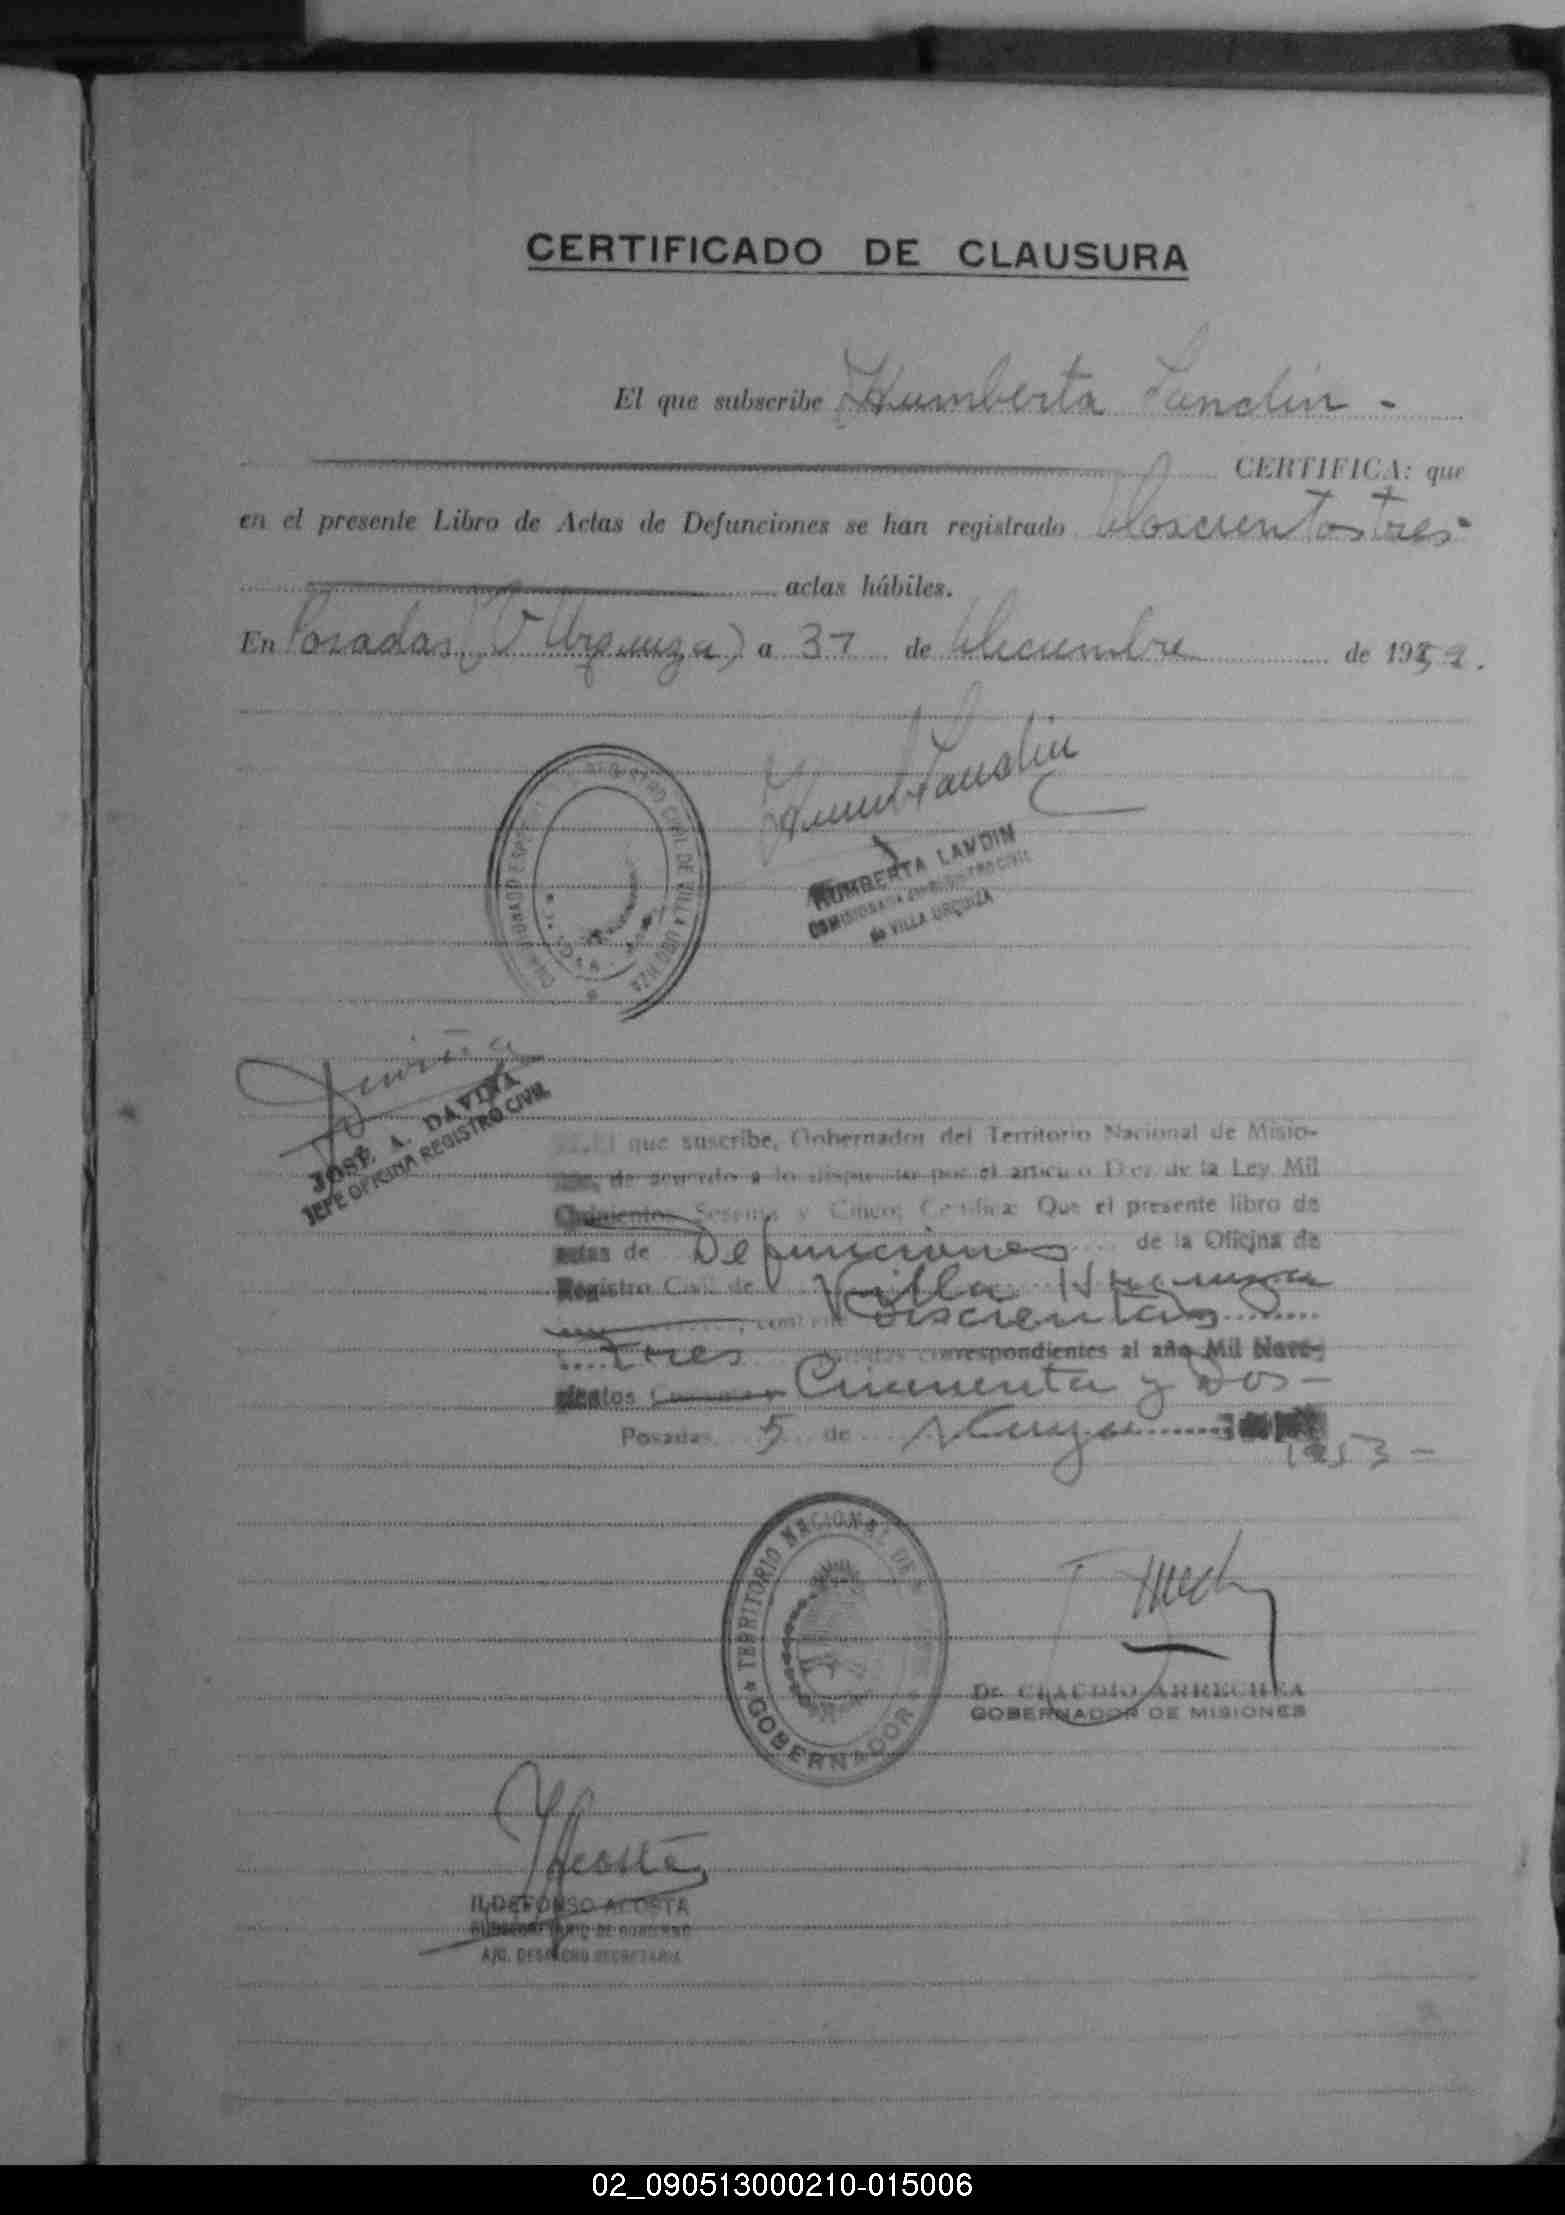 CERTIFICADO DE CLAUSURA
El que subscribe Humberta Landin -
CERTIFICA: que
en el presente Libro de Actas de Defunciones se han registrado doscientos tres -
actas hábiles.
En Posadas (V Urquiza) a 31 de diciembre de 1952.
REGISTRO CIVIL DE VILLA URQUIZA
Humb Landin
HUMBERTA LANDIN
REGISTRO CIVIL
de VILLA URQUIZA
Daviña
JOSE A. DAVIÑA
JEFE OFICINA REGISTRO CIVIL
El que suscribe, Gobernador del Territorio Nacional de Misio-
nes, de acuerdo a lo dispuesto por el artículo Diez de la Ley Mil
Quinientos Sesenta y Cinco; Certifica: Que el presente libro de
actas de Defunciones de la Oficina de
Registro Civil de Villa Urquiza
doscientas
tres correspondientes al año Mil Nove-
cientos Cincuenta y Dos -
Posadas 5 de Mayo
1953 -
TERRITORIO NACIONAL DE
GOBERNADOR
Dr. CLAUDIO ARRECHEA
GOBERNADOR DE MISIONES
IAcosta
ILDEFONSO ACOSTA
SUBSECRETARIO DE GOBIERNO
A/C. DESPACHO SECRETARIA
02_090513000210-015006